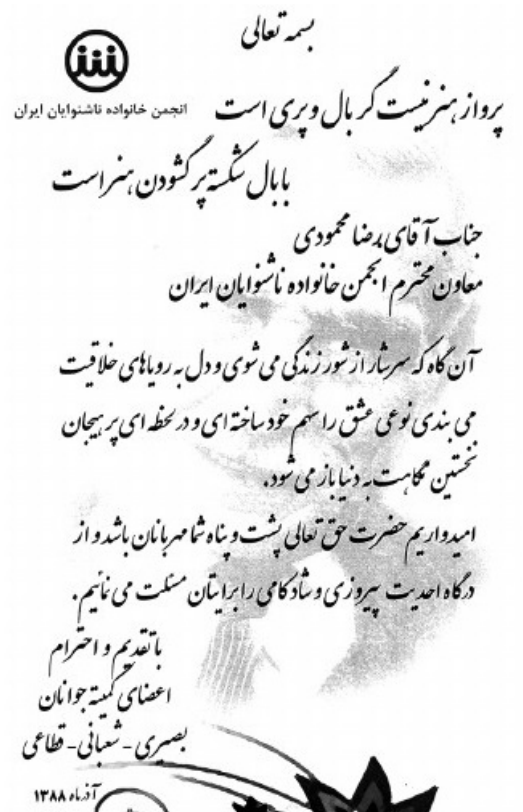 بسمه تعالی
انجمن خانواده ناشنوایان ایران
پرواز هنر نیست گر بال و پری است
با بال شکسته پر گشودن هنر است
جناب آقای رضا محمودی
معاون محترم انجمن خانواده ناشنوایان ایران
آن گاه که سرشار از شور زندگی می شوی و دل به رویاهای خلاقیت
می بندی نوعی عشق را سهم خود ساخته ای و در لحظه ای پر هیجان
نخستین نگاهت به دنیا باز می شود.
امیدواریم حضرت حق تعالی پشت و پناه شما مهربانان باشد و از
درگاه احدیت پیروزی و شادکامی را برایتان مسئلت می نمائیم.
با تقدیم و احترام
اعضای کمیته جوانان
بصیری - شعبانی - قطاعی
آذرماه ۱۳۸۸